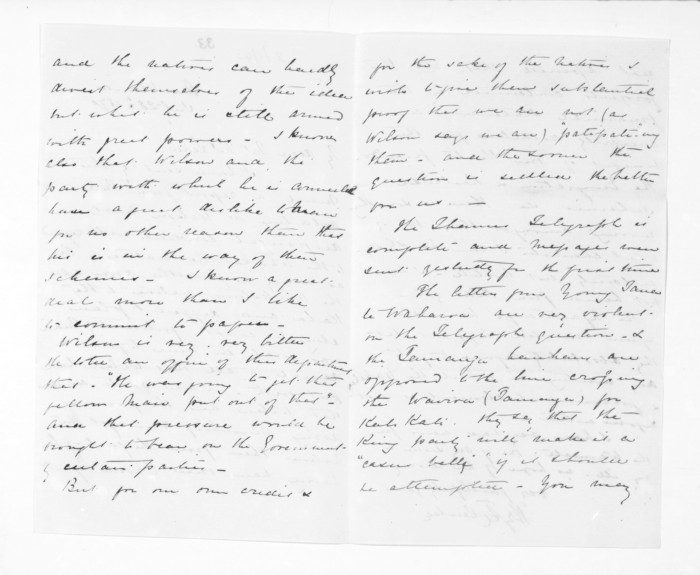 33
and the natives can hardly
divest themselves of the idea
but what he is still armed
with great powers - I know
also that Wilson and the
party with which he is connected
have a great dislike to
for no other reason than that
he is in the way of their
schemes - I know a great
deal more than I like
to commit to paper -
Wilson is very very bitter
he told an officer of this department
that - "He was going to get that
fellow Mair put out of that" -
and that pressure would be
brought to bear on the Government
by certain parties -
But for our own credit &
for the sake of the natives I
wish to give them substantial
proof that we are not (as
Wilson says we are)
them - and the sooner the
question is settled the better
for us -
The Thames Telegraph is
complete and messages were
sent yesterday for the first time
The letters from Young Tana
te Waharoa are very violent
on the Telegraph question - &
the Tauranga hauhaus are
opposed to the line crossing
the Wairoa (Tauranga) for
Kati Kati. They say that the
King party will make it a
"casus belli" if it should
be attempted - You may